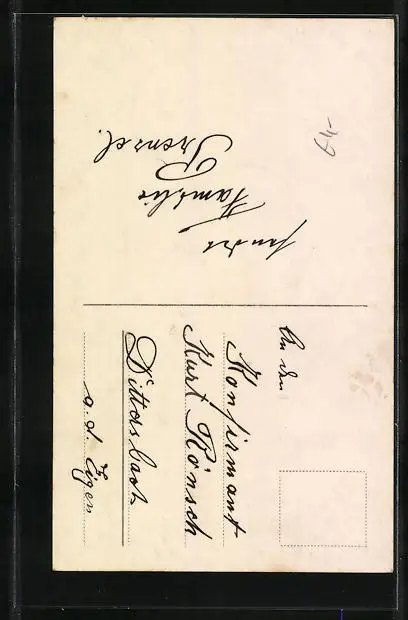 sendet
Familie
Prenzel.
An den
Konfirmant
Kurt Rönsch
Dittersbach
a. d. Eigen